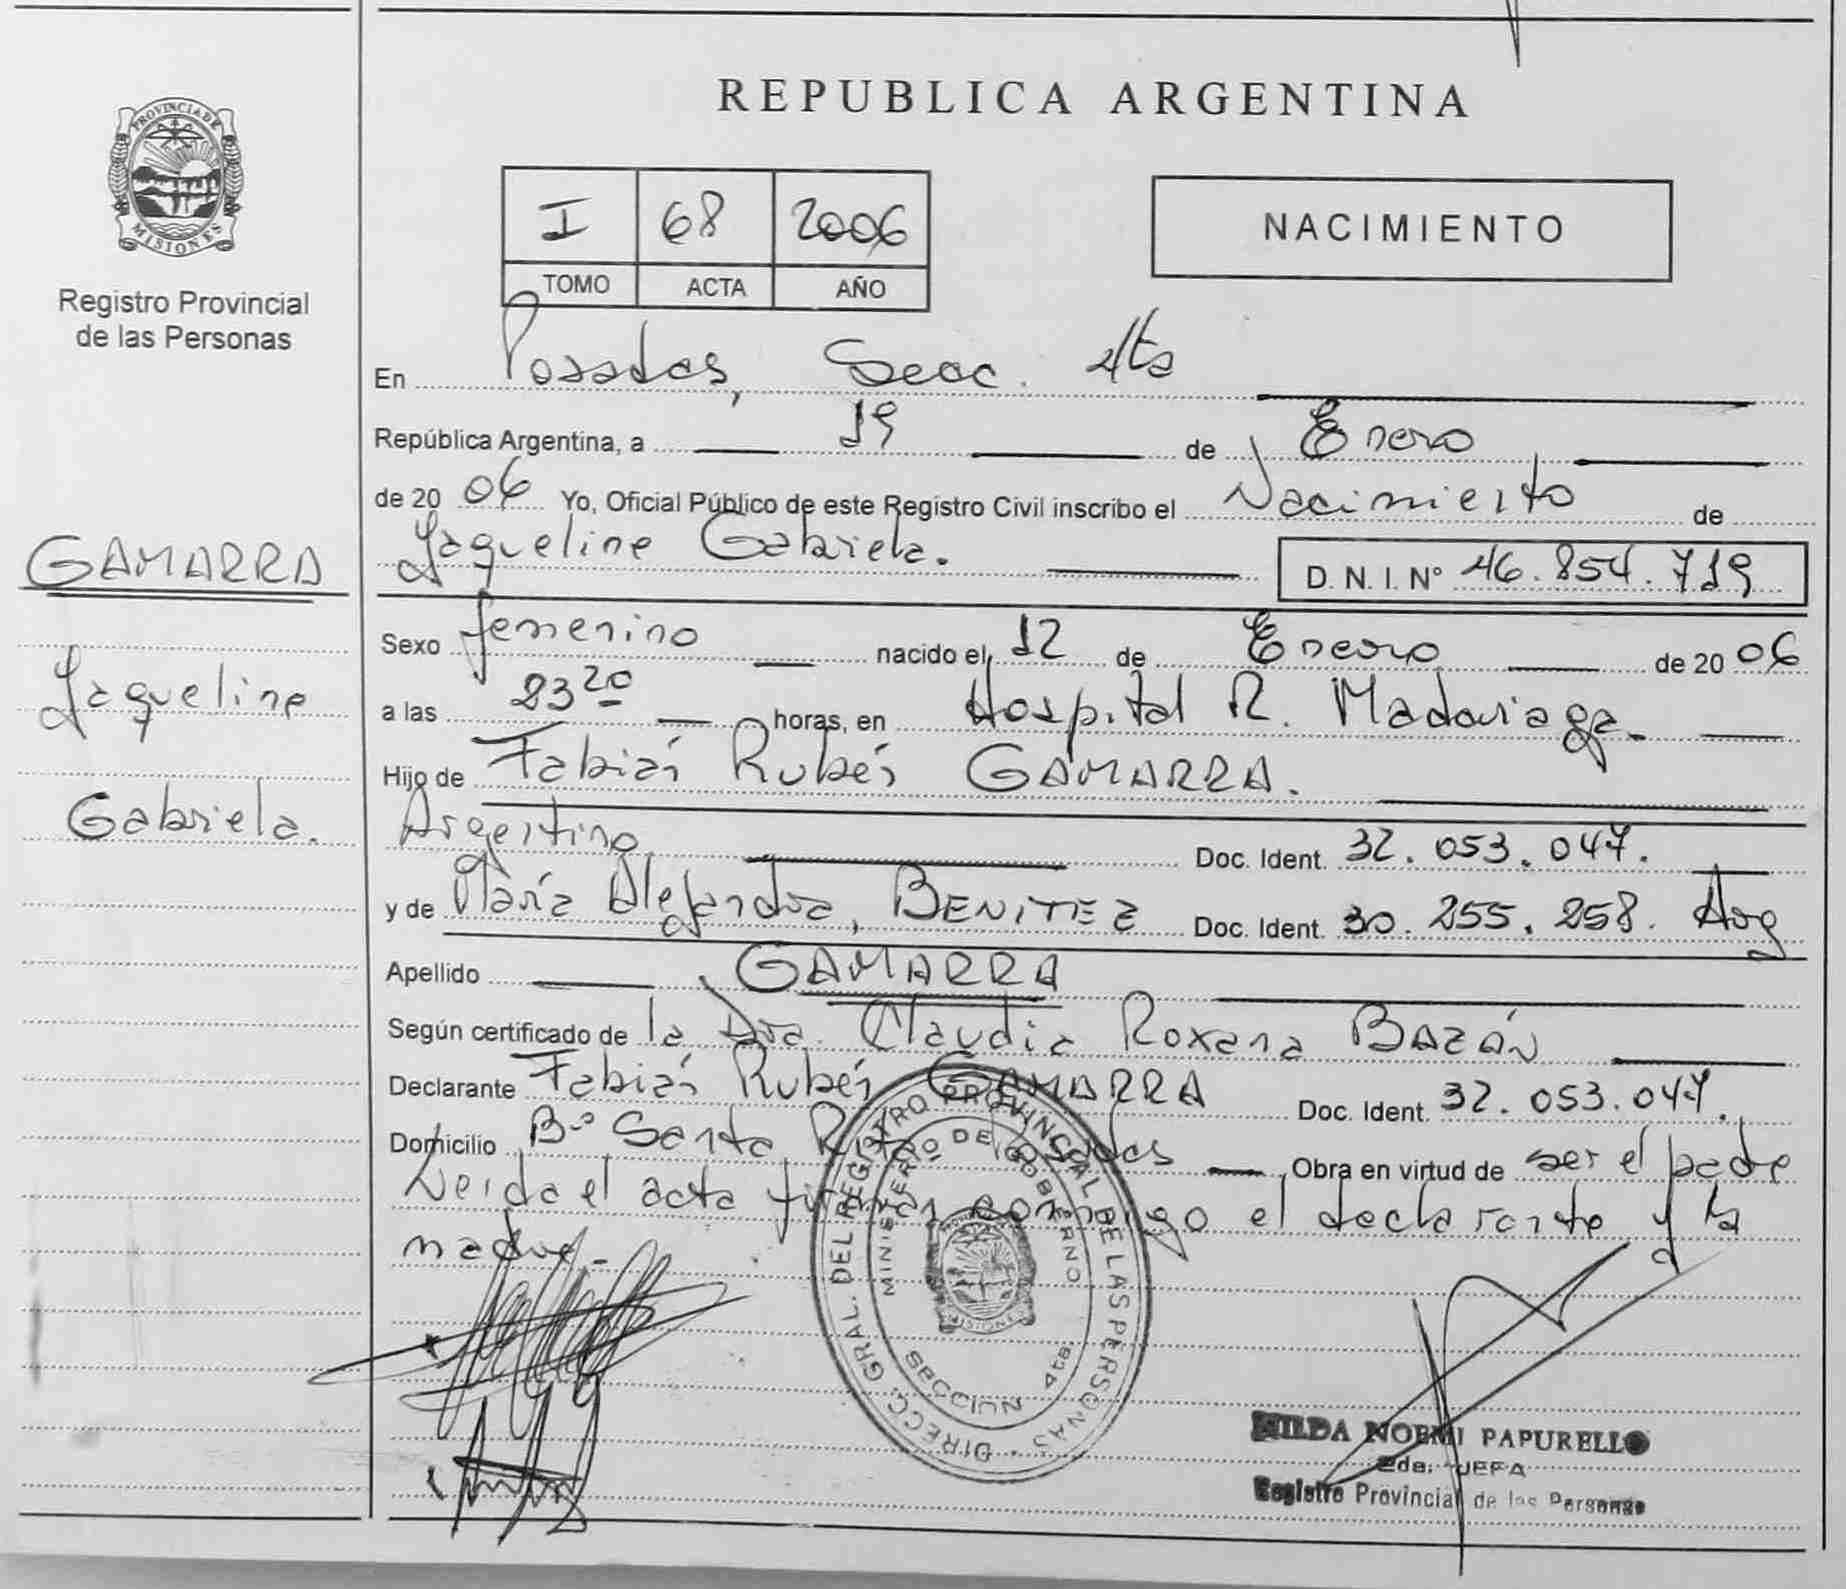 REPUBLICA ARGENTINA
PROVINCIA DE
MISIONES
Registro Provincial
de las Personas
I 68 2006
TOMO ACTA AÑO
NACIMIENTO
En Posadas, Secc. 4ta
República Argentina, a 19 de Enero
de 20 06 Yo, Oficial Público de este Registro Civil inscribo el Nacimiento de
Jaqueline Gabriela. D. N. I. Nº 46.854.719
GAMARRA
Jaqueline
Gabriela.
Sexo femenino nacido el 12 de Enero de 20 06
a las 23 20 horas, en Hospital R. Madariaga.
Hijo de Fabián Rubén GAMARRA.
Argentino Doc. Ident. 32.053.047.
y de María Alejandra, BENITEZ Doc. Ident. 30.255.258. Arg
Apellido GAMARRA
Según certificado de la Dra. Claudia Roxana BAZÁN
Declarante Fabián Rubén GAMARRA Doc. Ident. 32.053.047.
Domicilio Bº Santa Rita Posadas Obra en virtud de ser el padre
Leida el acta firman conmigo el declarante y la
madre.-
DIRECC. GRAL. DEL REGISTRO PROVINCIAL DE LAS PERSONAS
MINISTERIO DE GOBIERNO
MISIONES
SECCION 4ta.
HILDA NOEMI PAPURELLO
2da. JEFA
Registro Provincial de las Personas